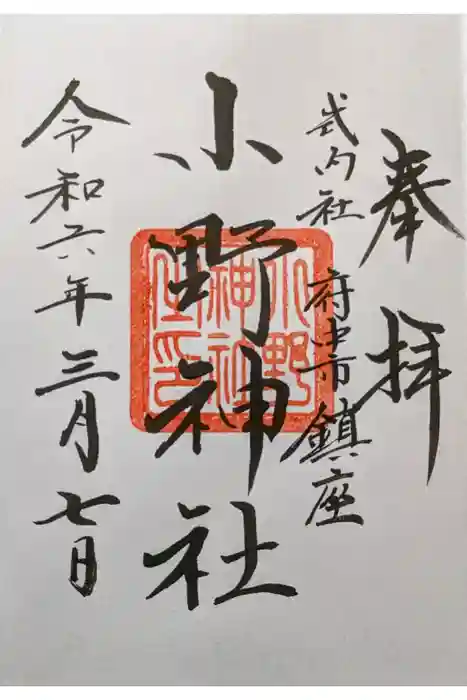 奉拝
式内社 府中市鎮座
小野神社
令和六年三月七日
小野
神社
之印